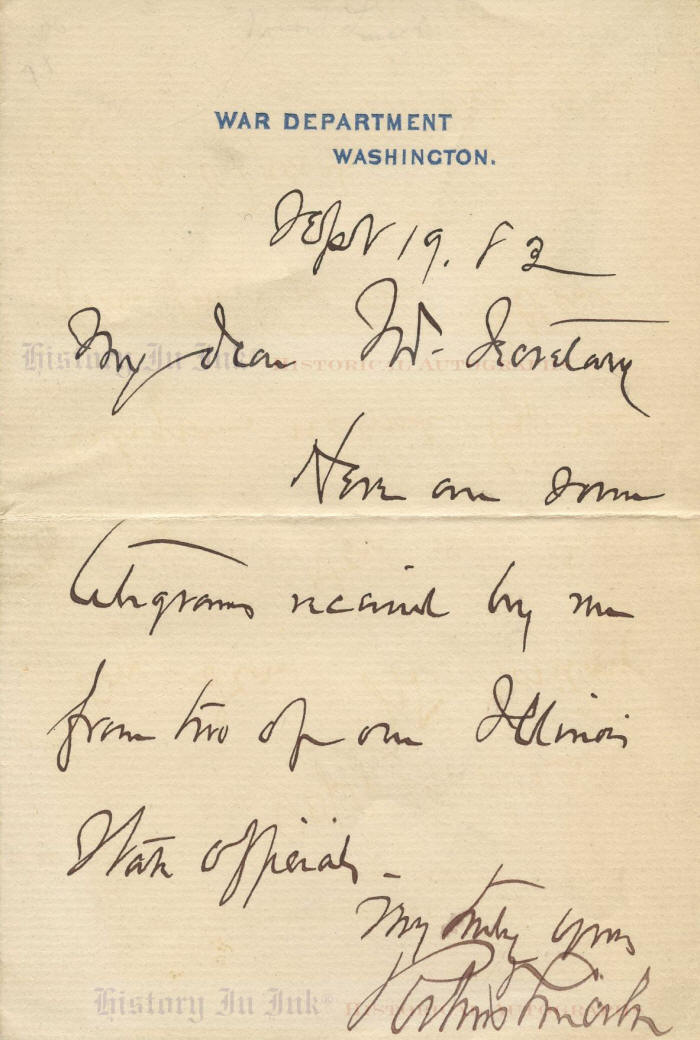 WAR DEPARTMENT
WASHINGTON.
Sept 19. 83
My dear Mr. Secretary
History In Ink® HISTORICAL AUTOGRAPHS
Here are some
telegrams received by me
from two of our Illinois
State officials.
Very truly yours
Robert Lincoln
History In Ink® HISTORICAL AUTOGRAPHS